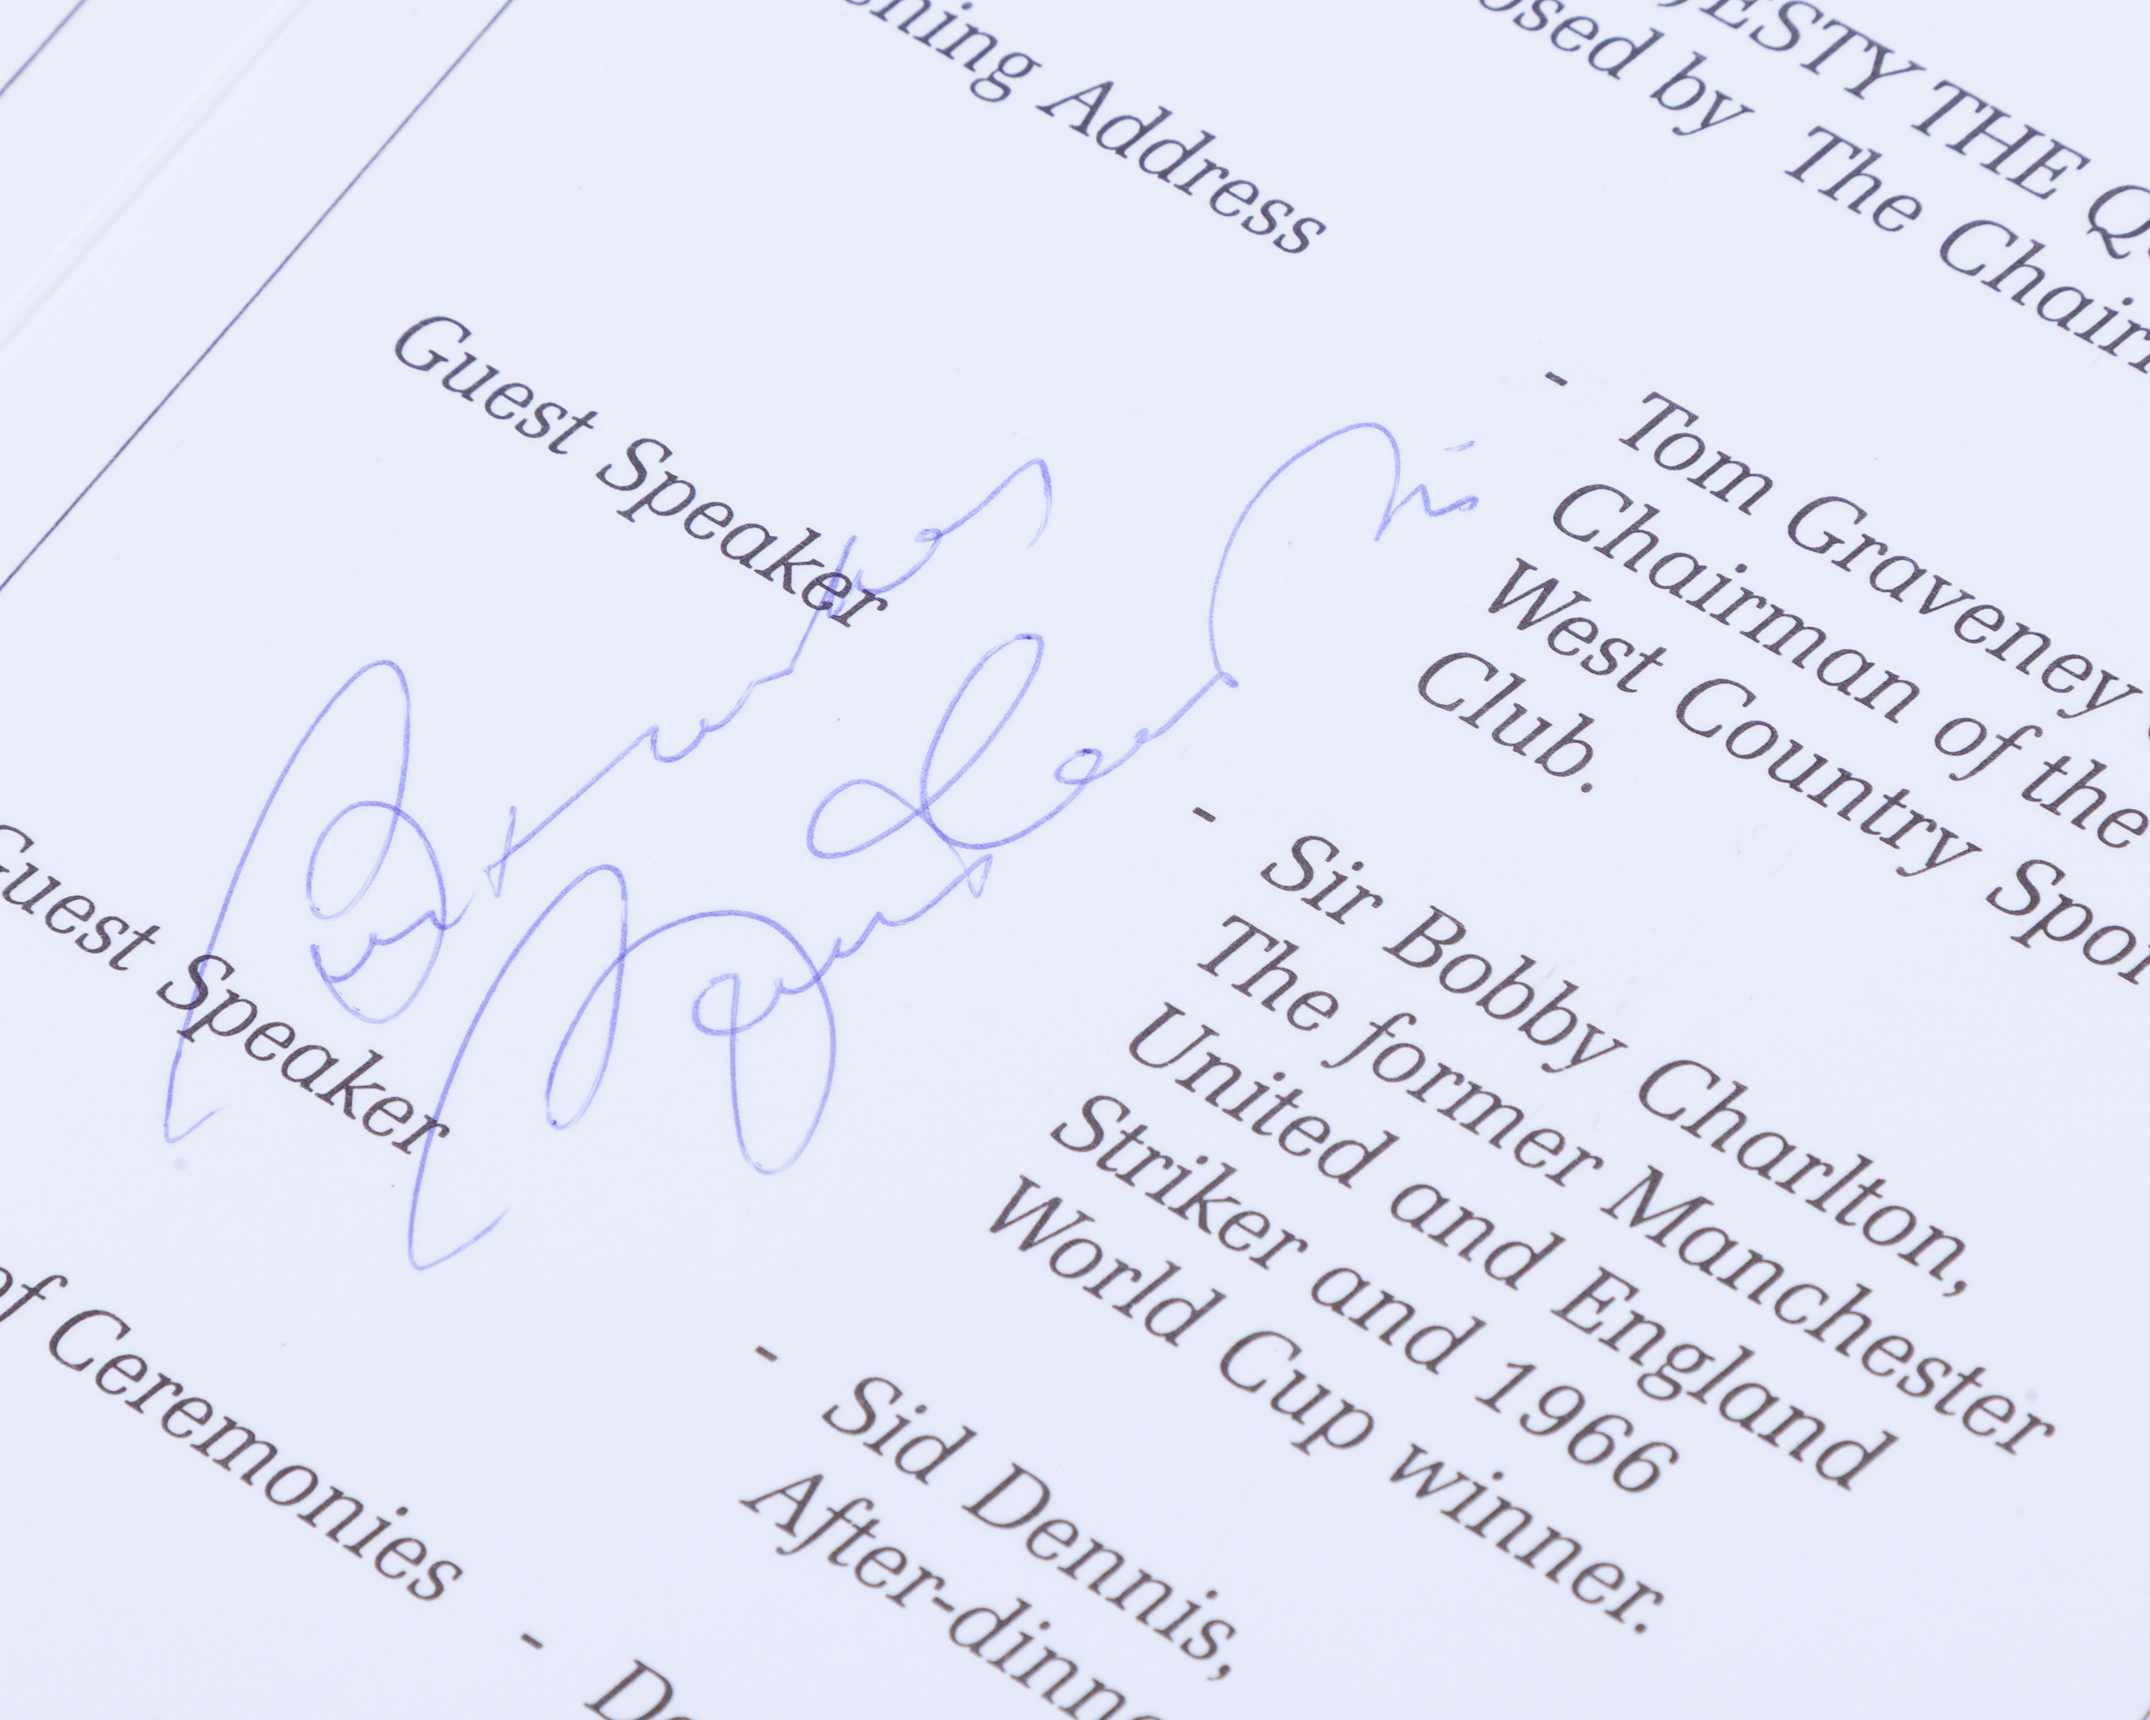 JESTY THE Q
osed by The Chair
ning Address
- Tom Graveney
Chairman of the
West Country Spor
Club.
Guest Speaker
- Sir Bobby Charlton,
The former Manchester
United and England
Striker and 1966
World Cup winner.
Guest Speaker
- Sid Dennis,
After-dinne
of Ceremonies
- D